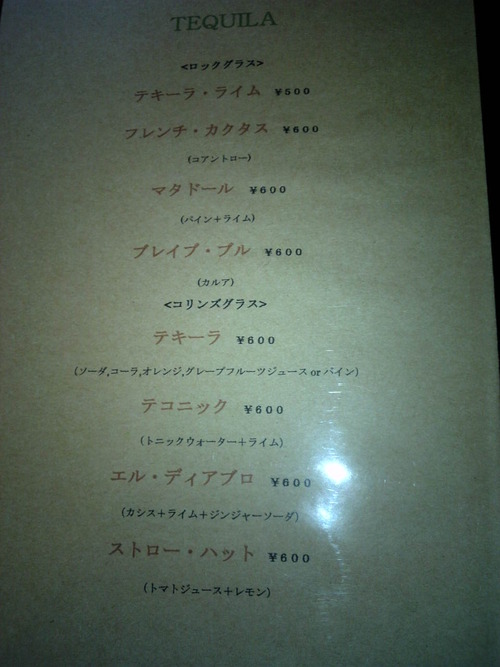 TEQUILA
<ロックグラス>
テキーラ・ライム ¥500
フレンチ・カクタス ¥600
(コアントロー)
マタドール ¥600
(パイン+ライム)
ブレイブ・ブル ¥600
(カルア)
<コリンズグラス>
テキーラ ¥600
(ソーダ,コーラ,オレンジ,グレープフルーツジュース or パイン)
テコニック ¥600
(トニックウォーター+ライム)
エル・ディアブロ ¥600
(カシス+ライム+ジンジャーソーダ)
ストロー・ハット ¥600
(トマトジュース+レモン)